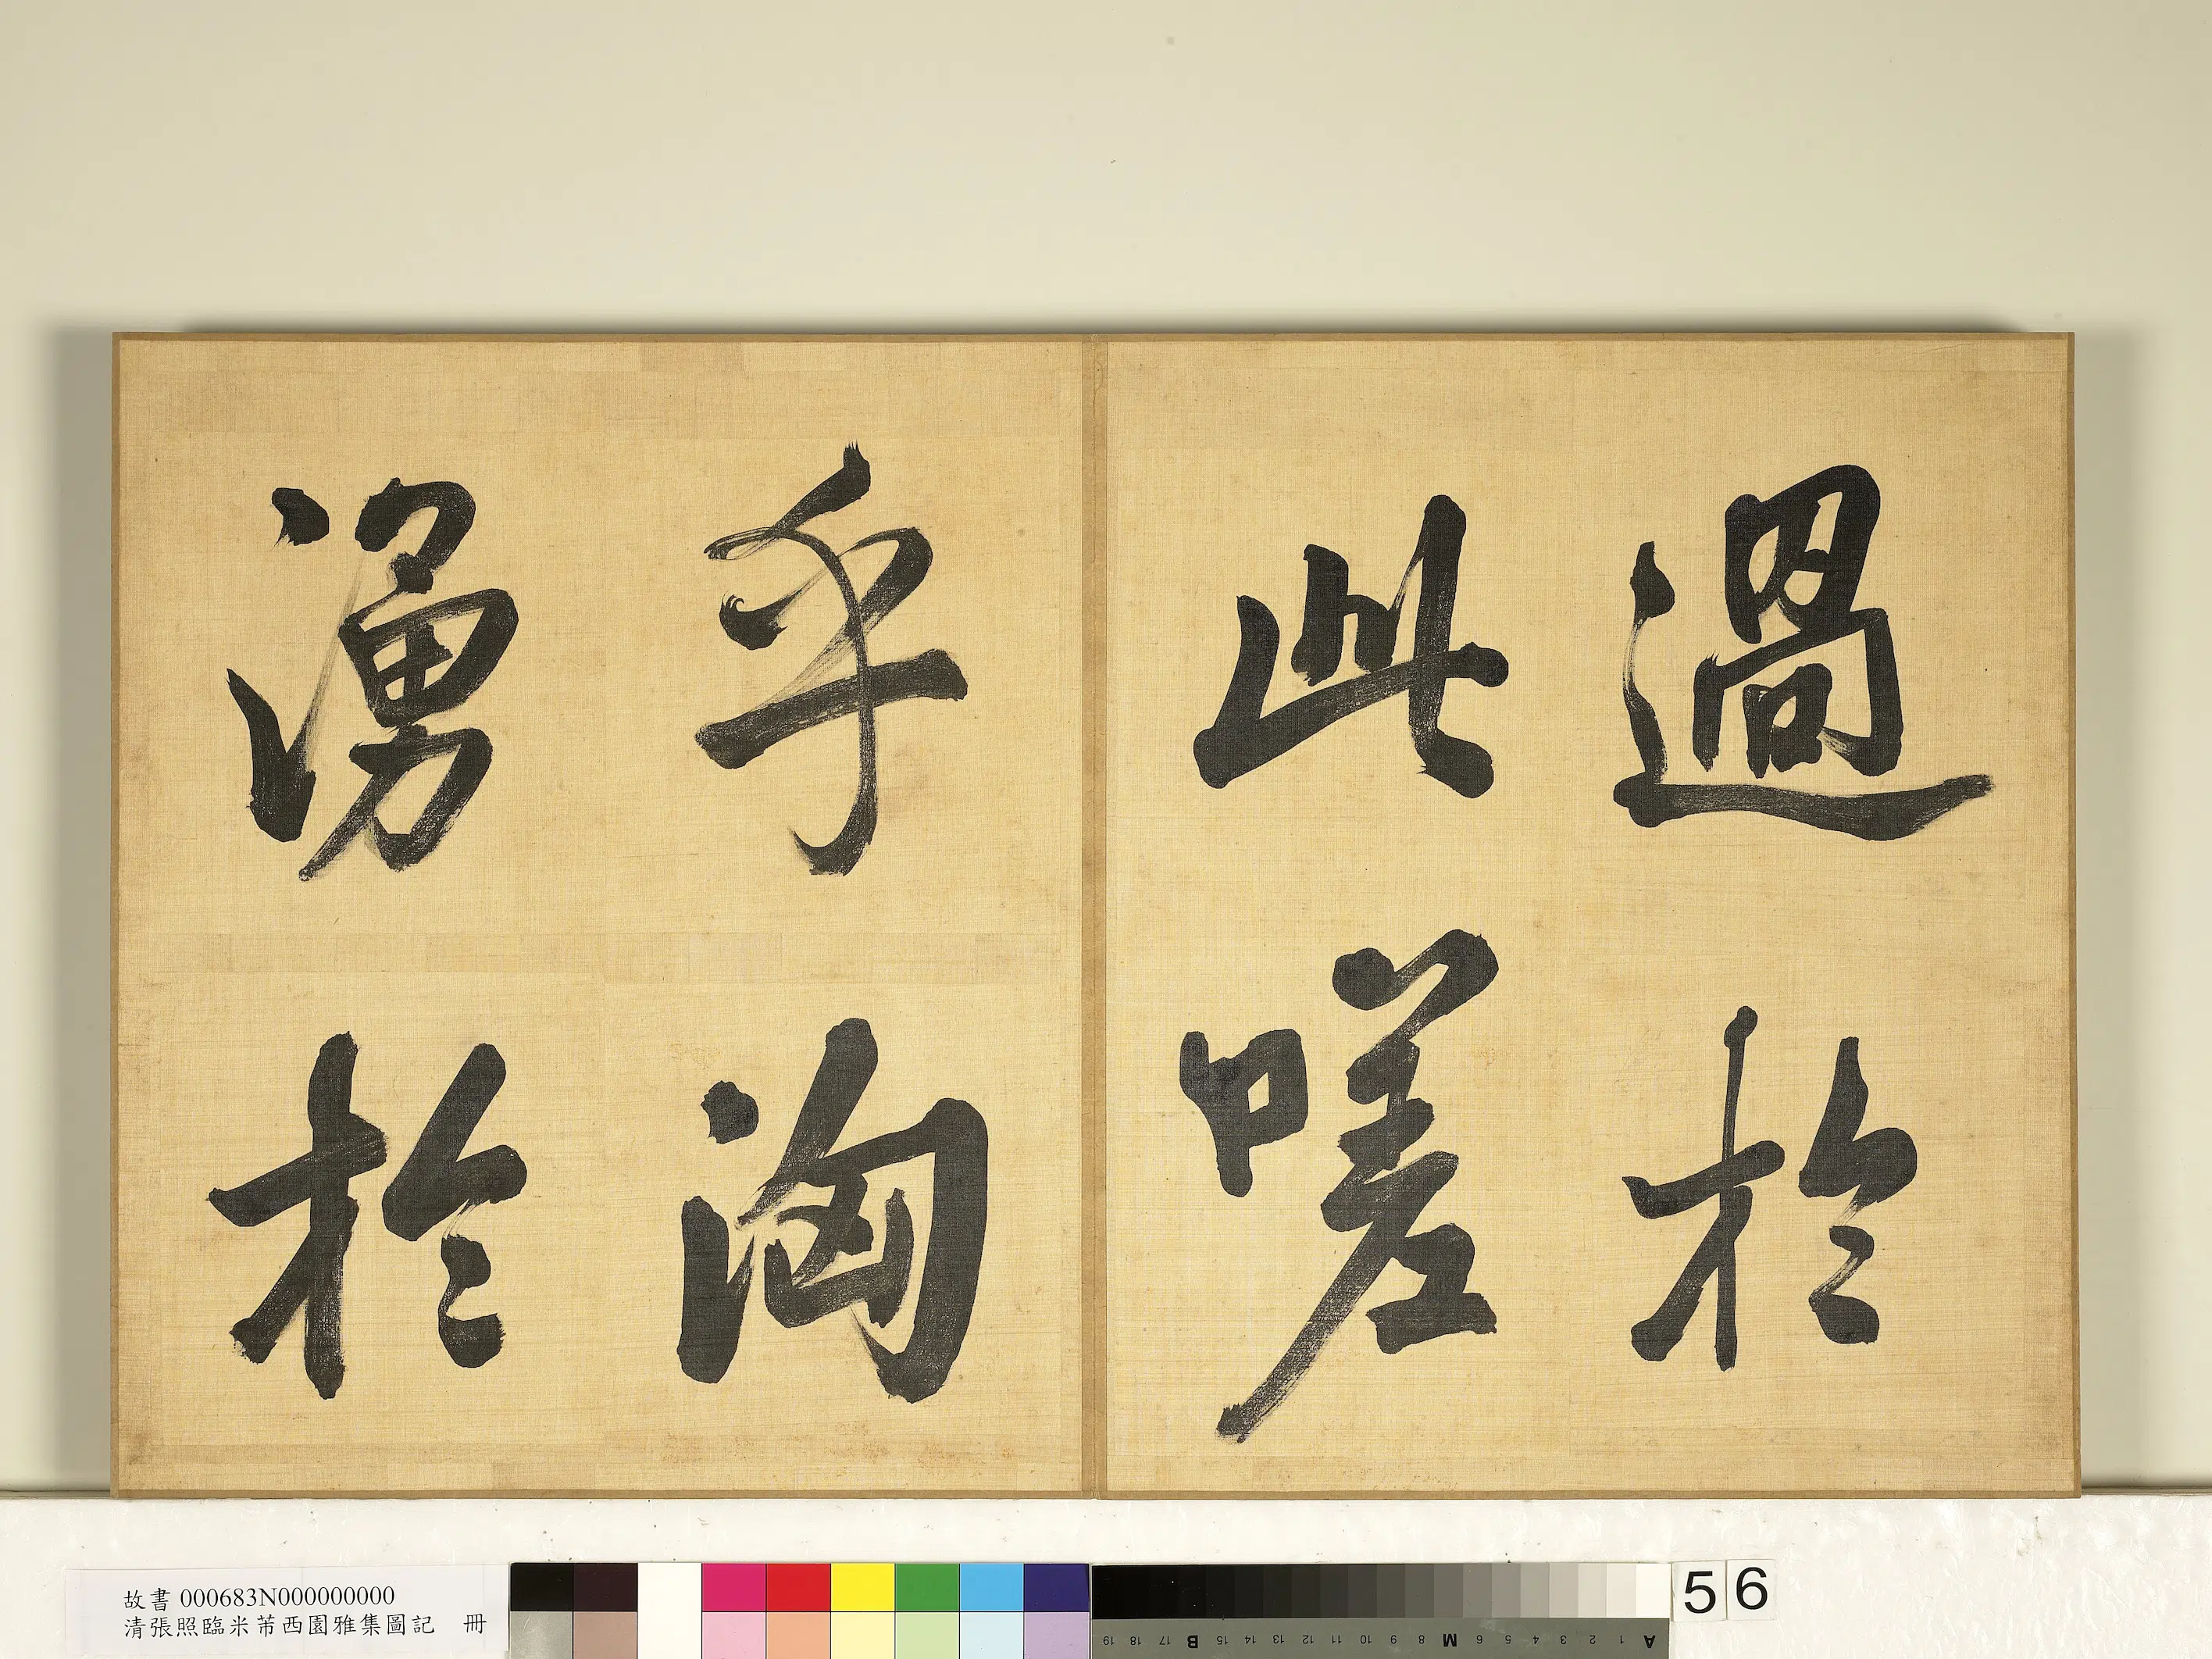 過於
此嗟
乎洶
湧於
故書 000683N000000000
清張照臨米芾西園雅集圖記 冊
56
19 18 17 B 15 14 13 12 11 10 9 8 M 6 5 4 3 2 1 A